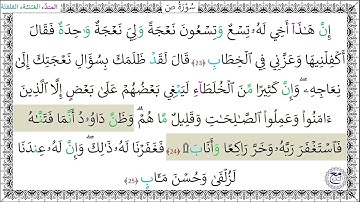 المدّ، الغنّة، القلقلة
سُورَةُ صٓ
إِنَّ هَٰذَآ أَخِي لَهُۥ تِسْعٌ وَتِسْعُونَ نَعْجَةً وَلِيَ نَعْجَةٌ وَٰحِدَةٌ فَقَالَ
أَكْفِلْنِيهَا وَعَزَّنِي فِي ٱلْخِطَابِ ﴿٢٣﴾ قَالَ لَقَدْ ظَلَمَكَ بِسُؤَالِ نَعْجَتِكَ إِلَىٰ
نِعَاجِهِۦۖ وَإِنَّ كَثِيرًا مِّنَ ٱلْخُلَطَآءِ لَيَبْغِي بَعْضُهُمْ عَلَىٰ بَعْضٍ إِلَّا ٱلَّذِينَ
ءَامَنُوا۟ وَعَمِلُوا۟ ٱلصَّٰلِحَٰتِ وَقَلِيلٌ مَّا هُمْۗ وَظَنَّ دَاوُۥدُ أَنَّمَا فَتَنَّٰهُ
فَٱسْتَغْفَرَ رَبَّهُۥ وَخَرَّ رَاكِعًا وَأَنَابَ۩ ﴿٢٤﴾ فَغَفَرْنَا لَهُۥ ذَٰلِكَۖ وَإِنَّ لَهُۥ عِندَنَا
لَزُلْفَىٰ وَحُسْنَ مَـَٔابٍ ﴿٢٥﴾